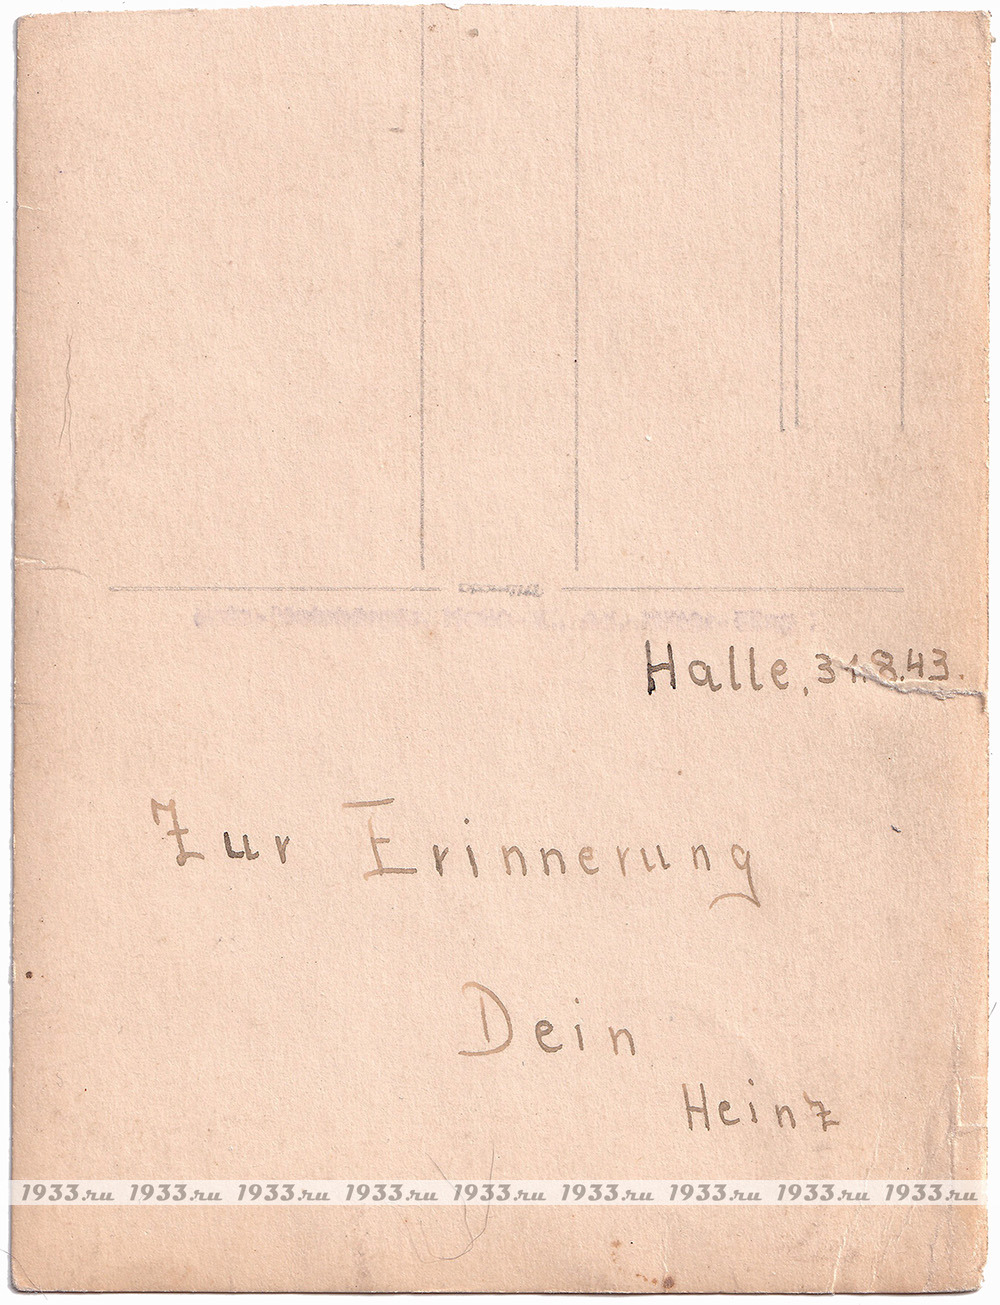 Halle, 31.8.43.
Zur Erinnerung
Dein
Heinz
1933.ru 1933.ru 1933.ru 1933.ru 1933.ru 1933.ru 1933.ru 1933.ru 1933.ru